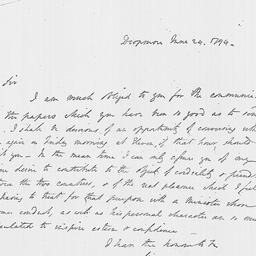 Dropmore June 24. 1794.
Sir
I am much obliged to you for the communica
the papers which you have been so good as to com
I shall be desirous of an opportunity of conversing with
again on Friday morning at Eleven, if that hour should
you - In the mean time I can only assure you of my
desire to contribute to the object of cordiality & friend
the two countries, & of the real pleasure which I feel
to treat for that purpose with a Minister whose
conduct, as well as his personal character are so
calculated to inspire esteem & confidence -
I have the honour to